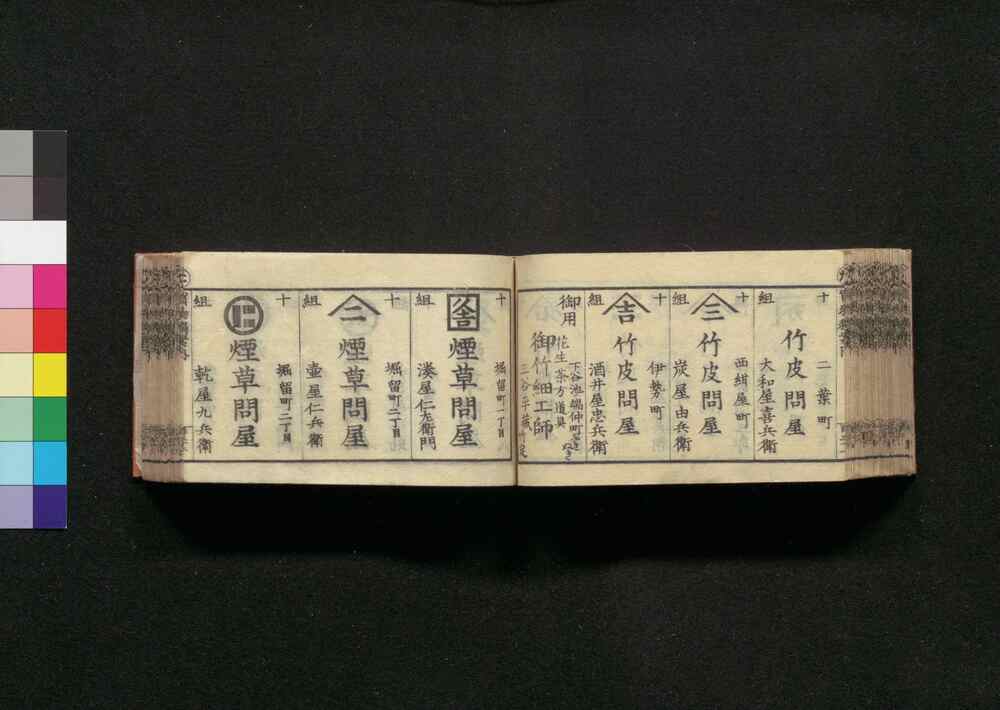 十組
二葉町
竹皮問屋
大和屋喜兵衛
十組
西紺屋町
三
竹皮問屋
炭屋由兵衛
十組
伊勢町
吉
竹皮問屋
酒井屋忠兵衛
御用
御竹細工師
花生茶方道具
下谷池端仲町
三谷平蔵
十組
堀留町一丁目
煙草問屋
湊屋仁左衛門
十組
堀留町二丁目
二
煙草問屋
壷屋仁兵衛
十組
堀留町二丁目
煙草問屋
乾屋九兵衛